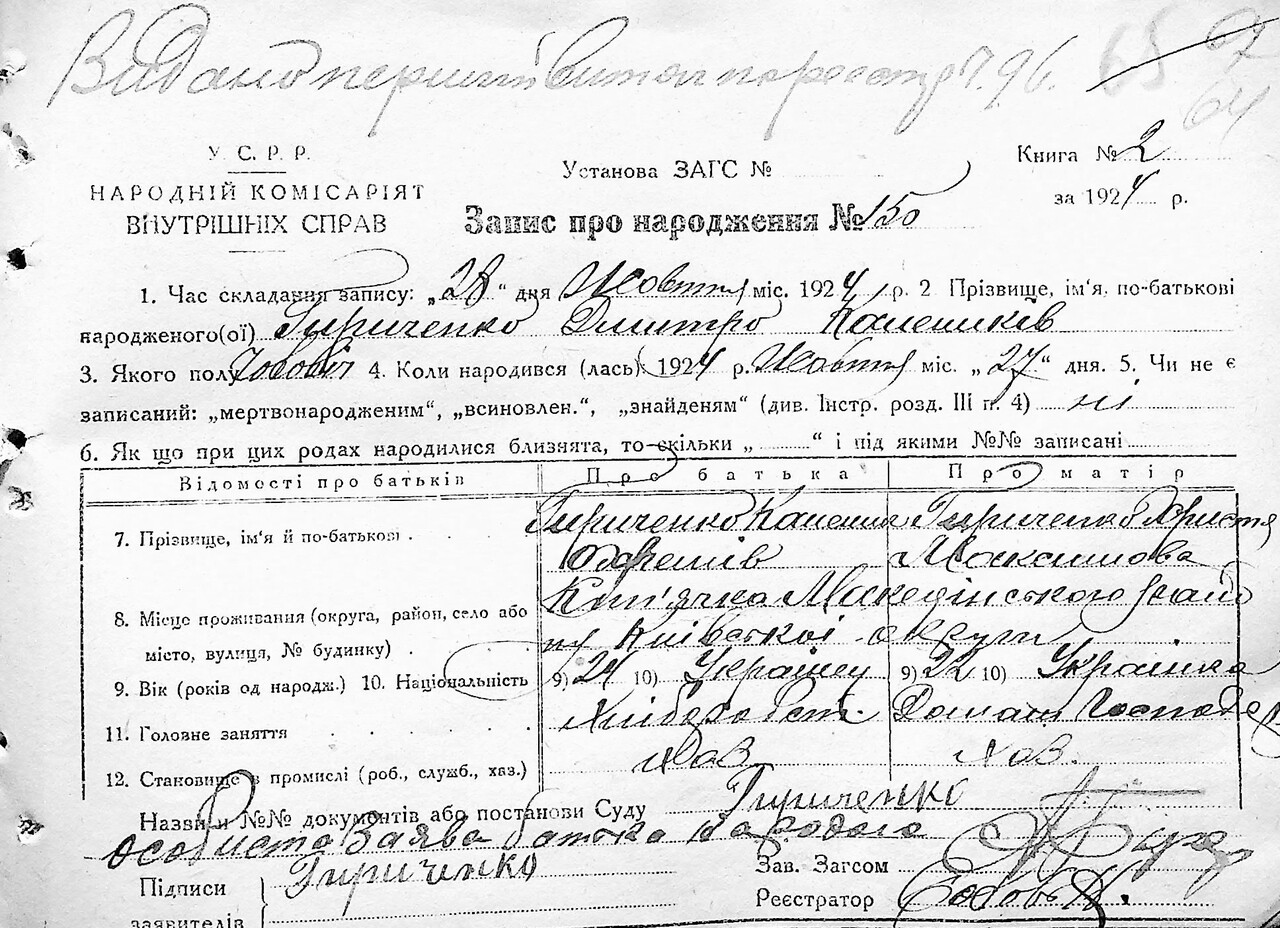 Видано перший витяг по реєстр 796.
У. С. Р. Р.
НАРОДНІЙ КОМІСАРІЯТ
ВНУТРІШНІХ СПРАВ
Установа ЗАГС №
Книга № 2
за 1924 р.
Запис про народження № 150
1. Час складання запису: „28“ дня Жовтня міс. 1924 р. 2 Прізвище, ім'я, по-батькові
народженого(ої) Гириченко Дмитро
3. Якого полу Чоловіч 4. Коли народився (лась) 1924 р. Жовтня міс. „27“ дня. 5. Чи не є
записаний: „мертвонародженим“, „всиновлен.“, „знайденям“ (див. Інстр. розд. III п. 4) ні
6. Як що при цих родах народилися близнята, то скільки „ “ і під якими №№ записані
Відомості про батьків
Про батька
Про матір
7. Прізвище, ім'я й по-батькові
Гириченко
Гириченко Христя
Максимова
8. Місце проживання (округа, район, село або
місто, вулиця, № будинку)
Київської округи
9. Вік (років од народж.) 10. Національність
9) 24 10) Українец
9) 22 10) Українка
11. Головне заняття
Хлібороб
Домашн Господ
12. Становище в промислі (роб., служб., хаз.)
хаз
хаз.
Назви й №№ документів або постанови Суду
Гириченко
особиста заява батька
Підписи
заявителів
Гириченко
Зав. Загсом
Реєстратор